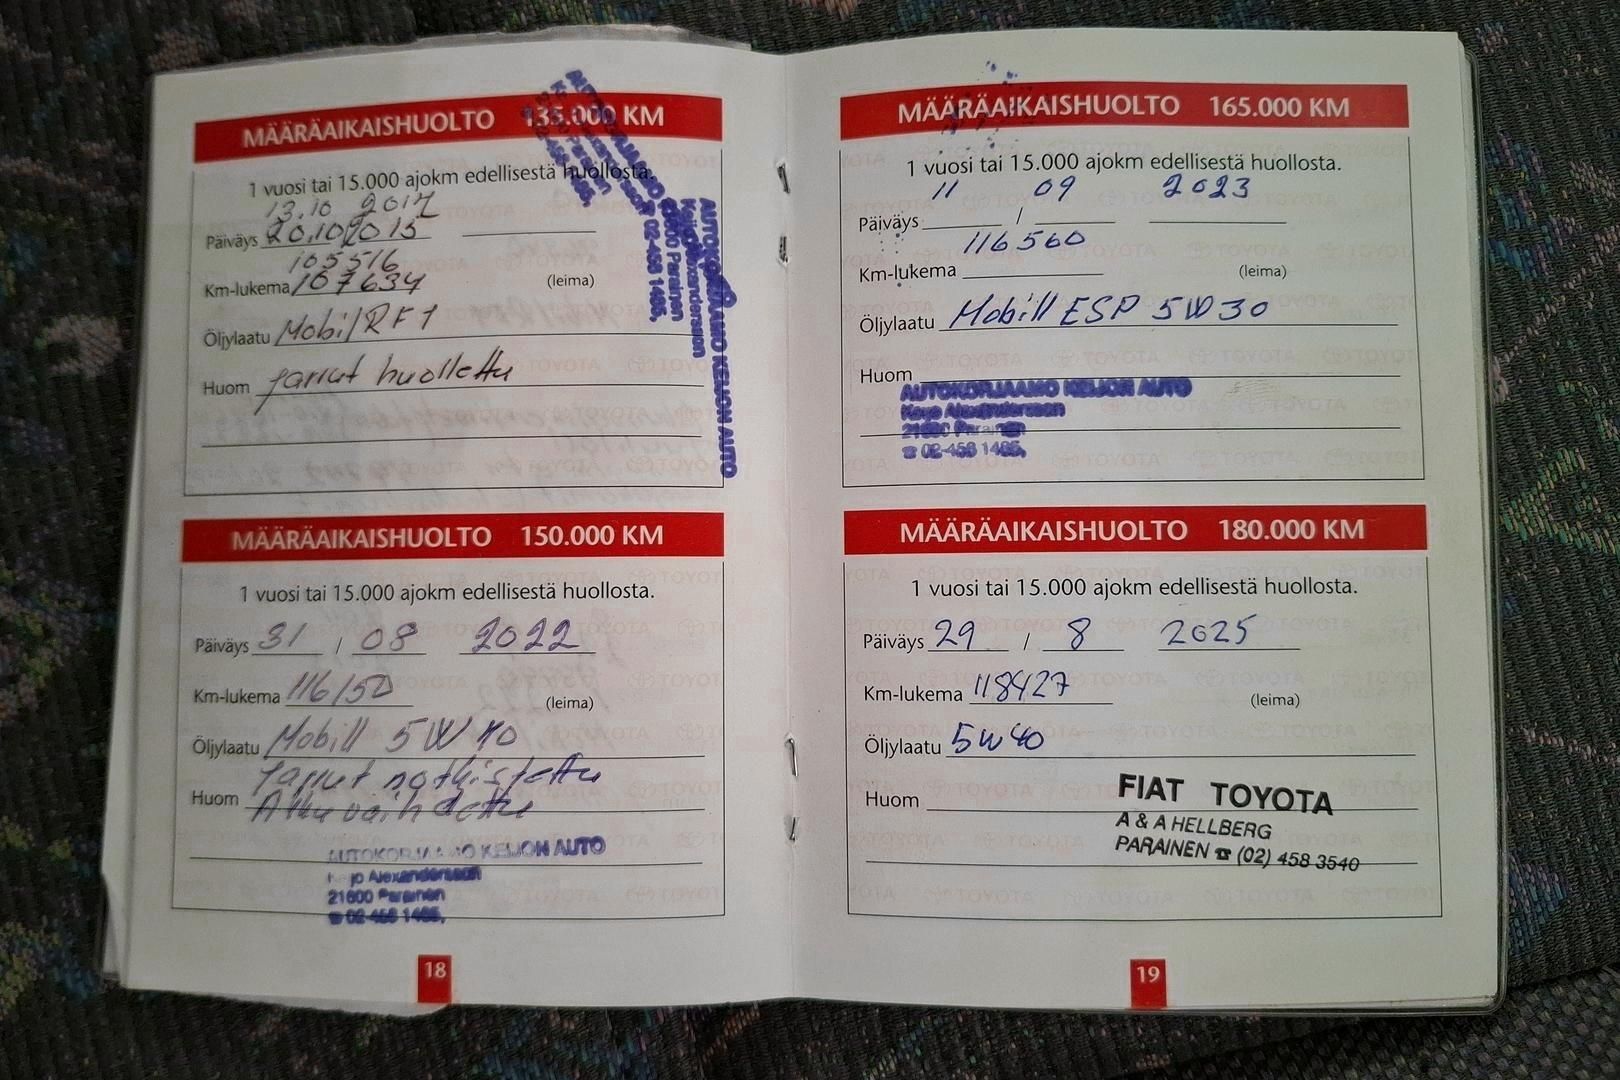 MÄÄRÄAIKAISHUOLTO 135.000 KM
1 vuosi tai 15.000 ajokm edellisestä huollosta.
13.10 2017
Päiväys 20.10 2015
105516
Km-lukema 107634 (leima)
Öljylaatu Mobil RF1
Huom jarrut huollettu
AUTOKORJAAMO KEIJON AUTO
Keijo Alexandersson
21600 Parainen
02-458 1485,
MÄÄRÄAIKAISHUOLTO 150.000 KM
1 vuosi tai 15.000 ajokm edellisestä huollosta.
Päiväys 31 / 08 2022
Km-lukema 116150 (leima)
Öljylaatu Mobill 5W40
jarrut notkistettu
Huom Akku vaihdettu
AUTOKORJAAMO KEIJON AUTO
Keijo Alexandersson
21600 Parainen
☎ 02-458 1485,
18
MÄÄRÄAIKAISHUOLTO 165.000 KM
1 vuosi tai 15.000 ajokm edellisestä huollosta.
Päiväys 11 / 09 2023
Km-lukema 116560 (leima)
Öljylaatu Mobill ESP 5W30
Huom
AUTOKORJAAMO KEIJON AUTO
Keijo Alexandersson
21600 Parainen
☎ 02-458 1485,
MÄÄRÄAIKAISHUOLTO 180.000 KM
1 vuosi tai 15.000 ajokm edellisestä huollosta.
Päiväys 29 / 8 2025
Km-lukema 118427 (leima)
Öljylaatu 5W40
Huom
FIAT TOYOTA
A & A HELLBERG
PARAINEN ☎ (02) 458 3540
19